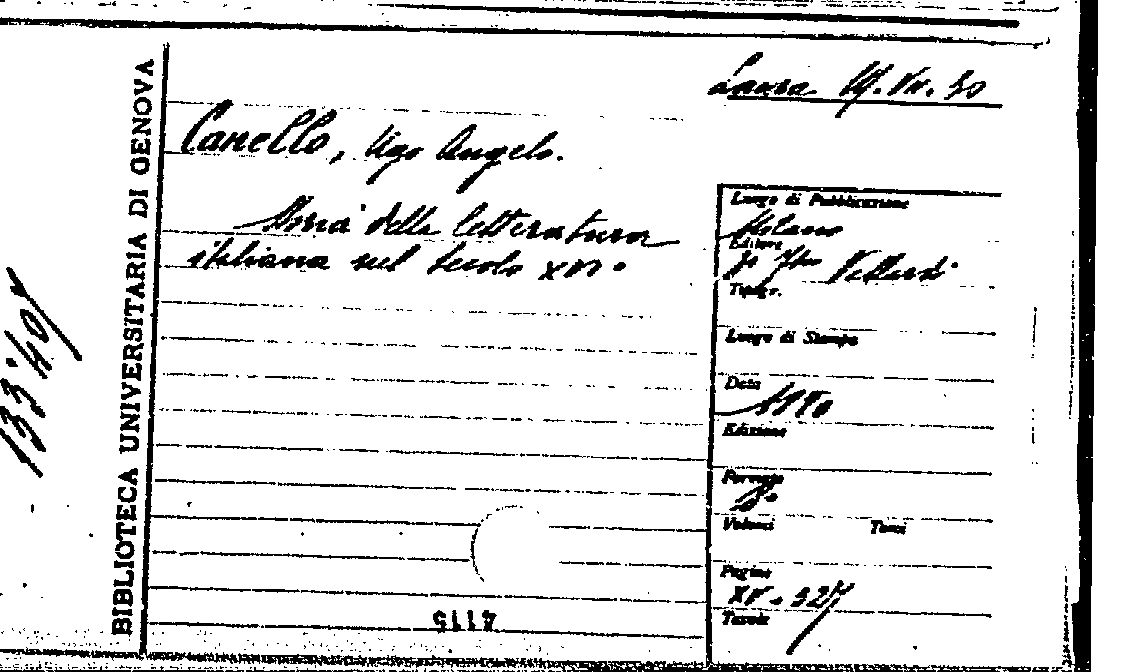 Laura 19.VII.30
Canello, Ugo Angelo.
Storia della letteratura
italiana nel secolo XVI°
BIBLIOTECA UNIVERSITARIA DI GENOVA
Luogo di Pubblicazione
Milano
Editore
Vallardi
Tipogr.
Luogo di Stampa
Data
1880
Edizione
Formato
8°
Volumi Tomi
Pagine
XV - 327
Tavole
4115